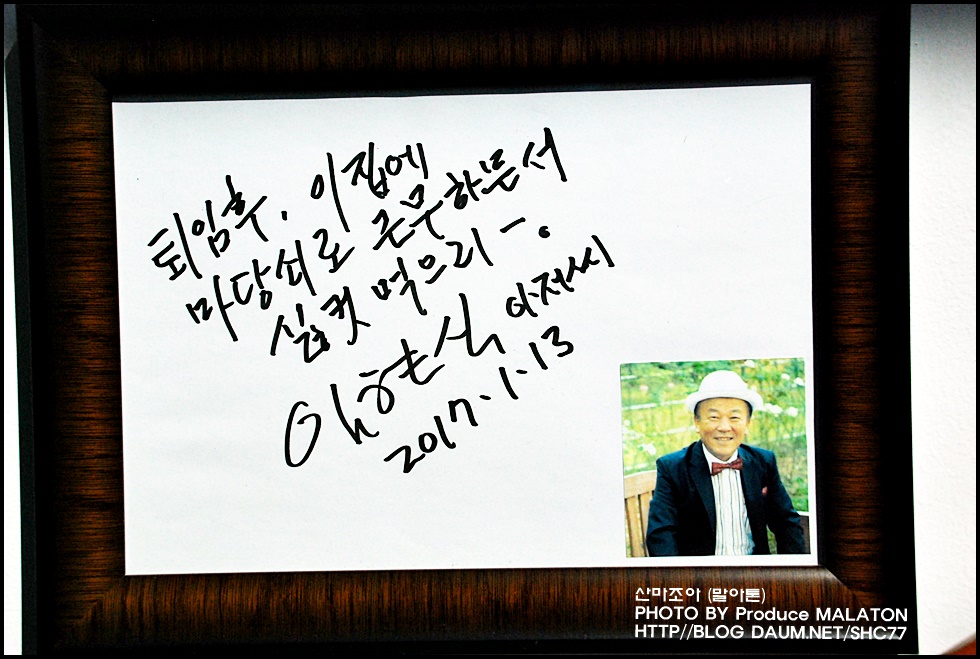 퇴임후, 이집에
마당쇠로 근무하믄서
실컷 먹으리 -.
아저씨
2017.1.13
산마조아 (말아톤)
PHOTO BY Produce MALATON
HTTP//BLOG DAUM.NET/SHC77